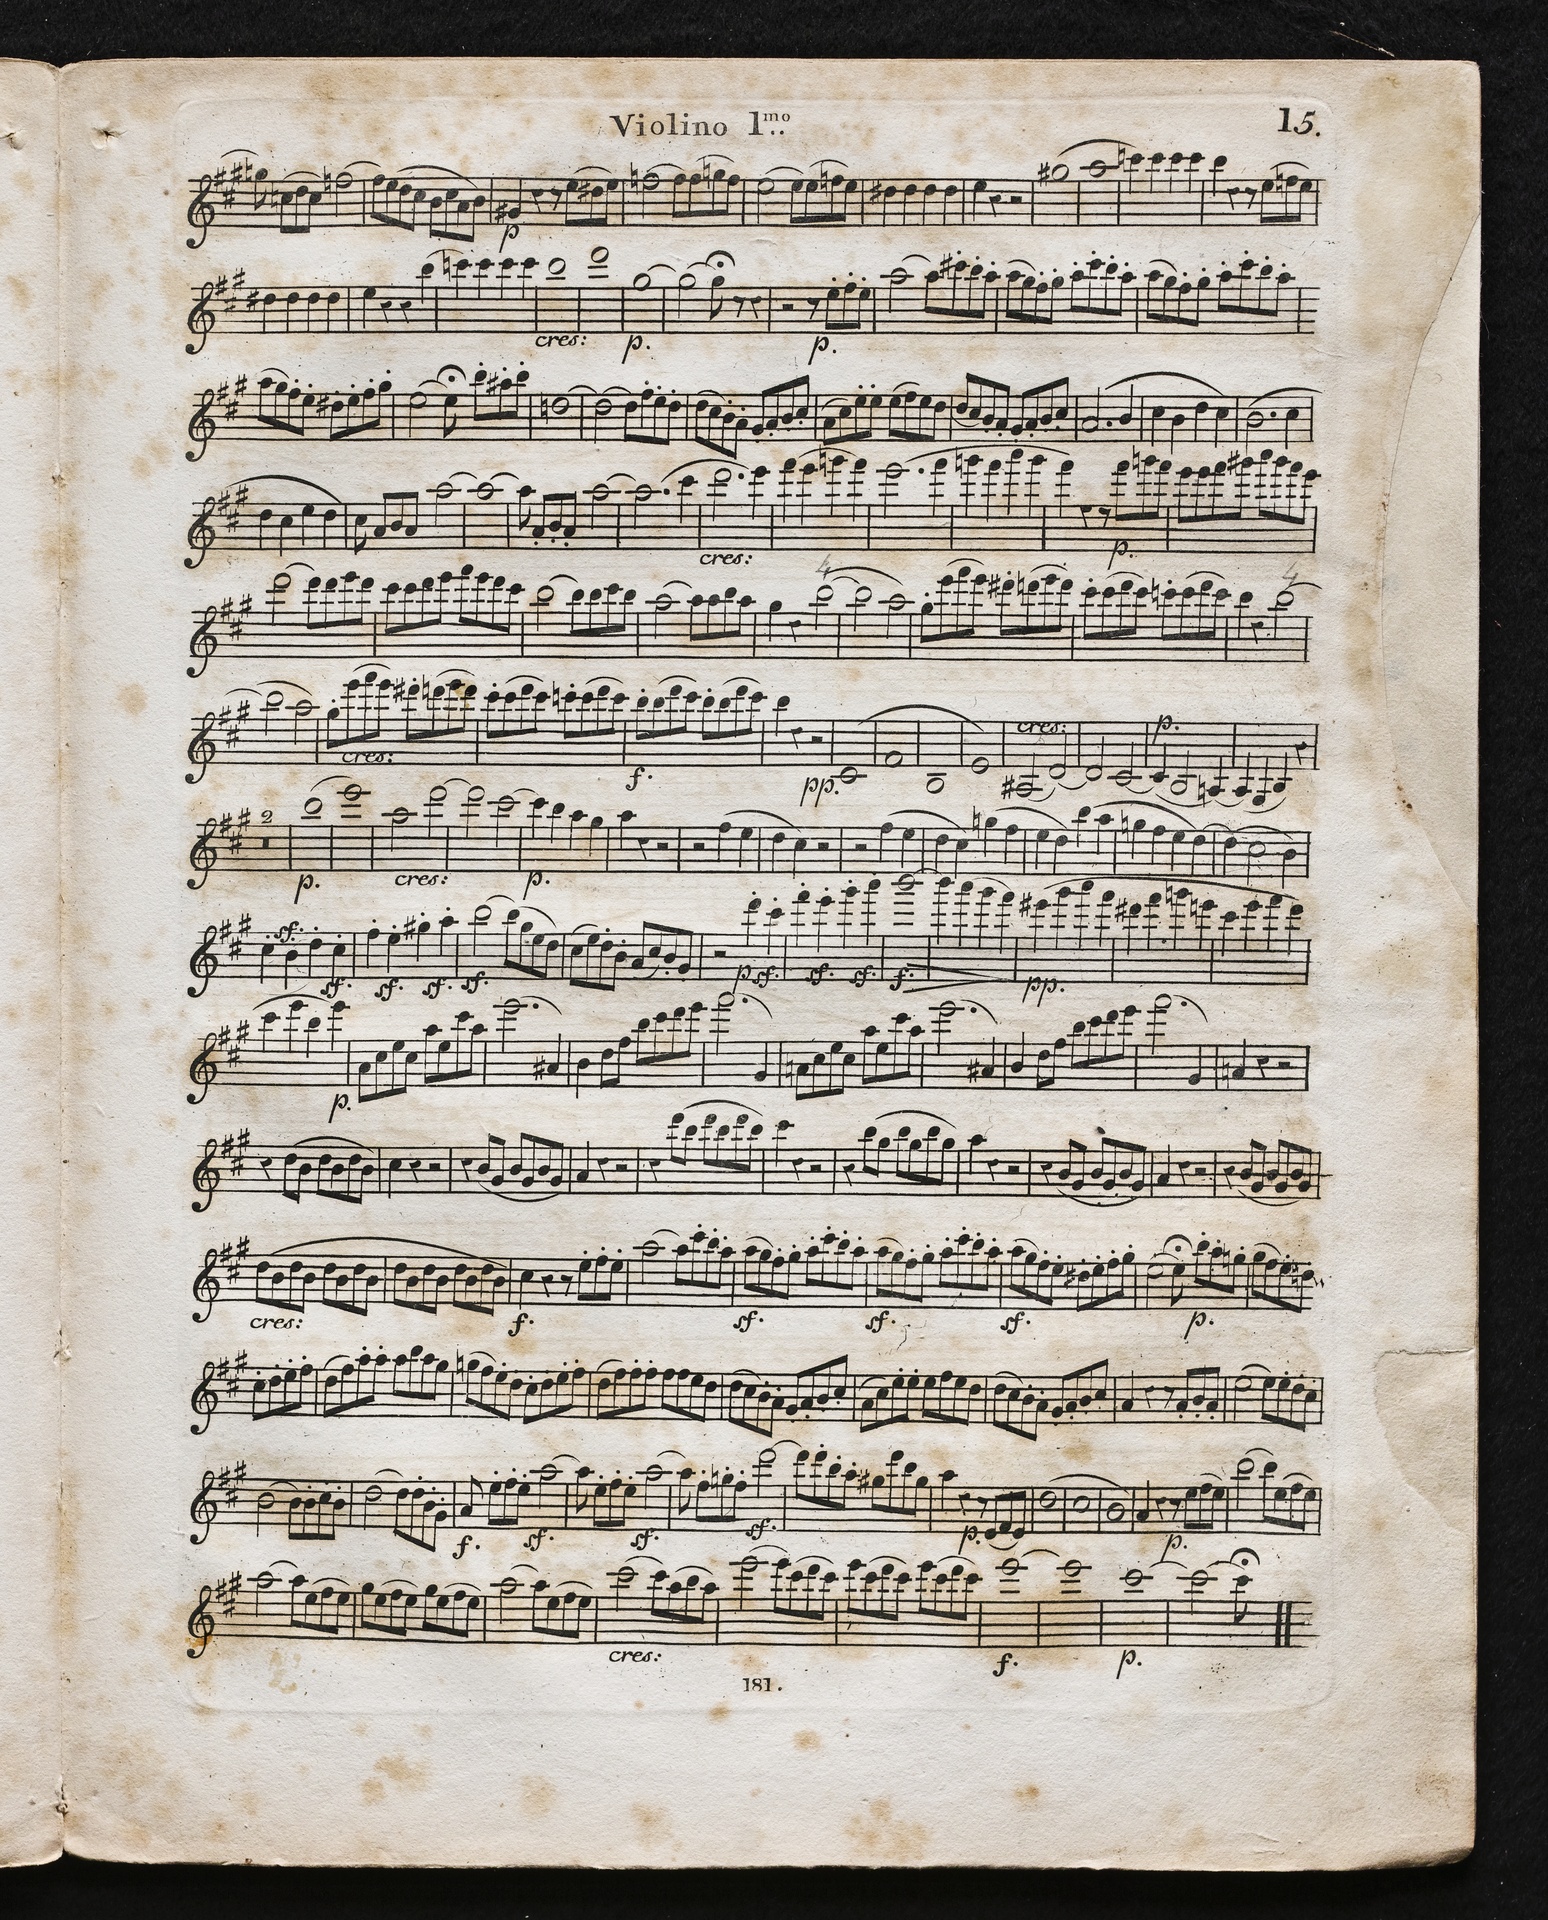 Violino 1mo
15.
p
cres: p. p.
cres: p.
4 4
cres: f. pp. cres: p.
2
p. cres: p.
sf. sf. sf. sf. sf. p sf. sf. sf. f. pp.
p.
cres: f. sf. sf. sf. p.
f. sf. sf. sf. p. p.
cres: f. p.
181.